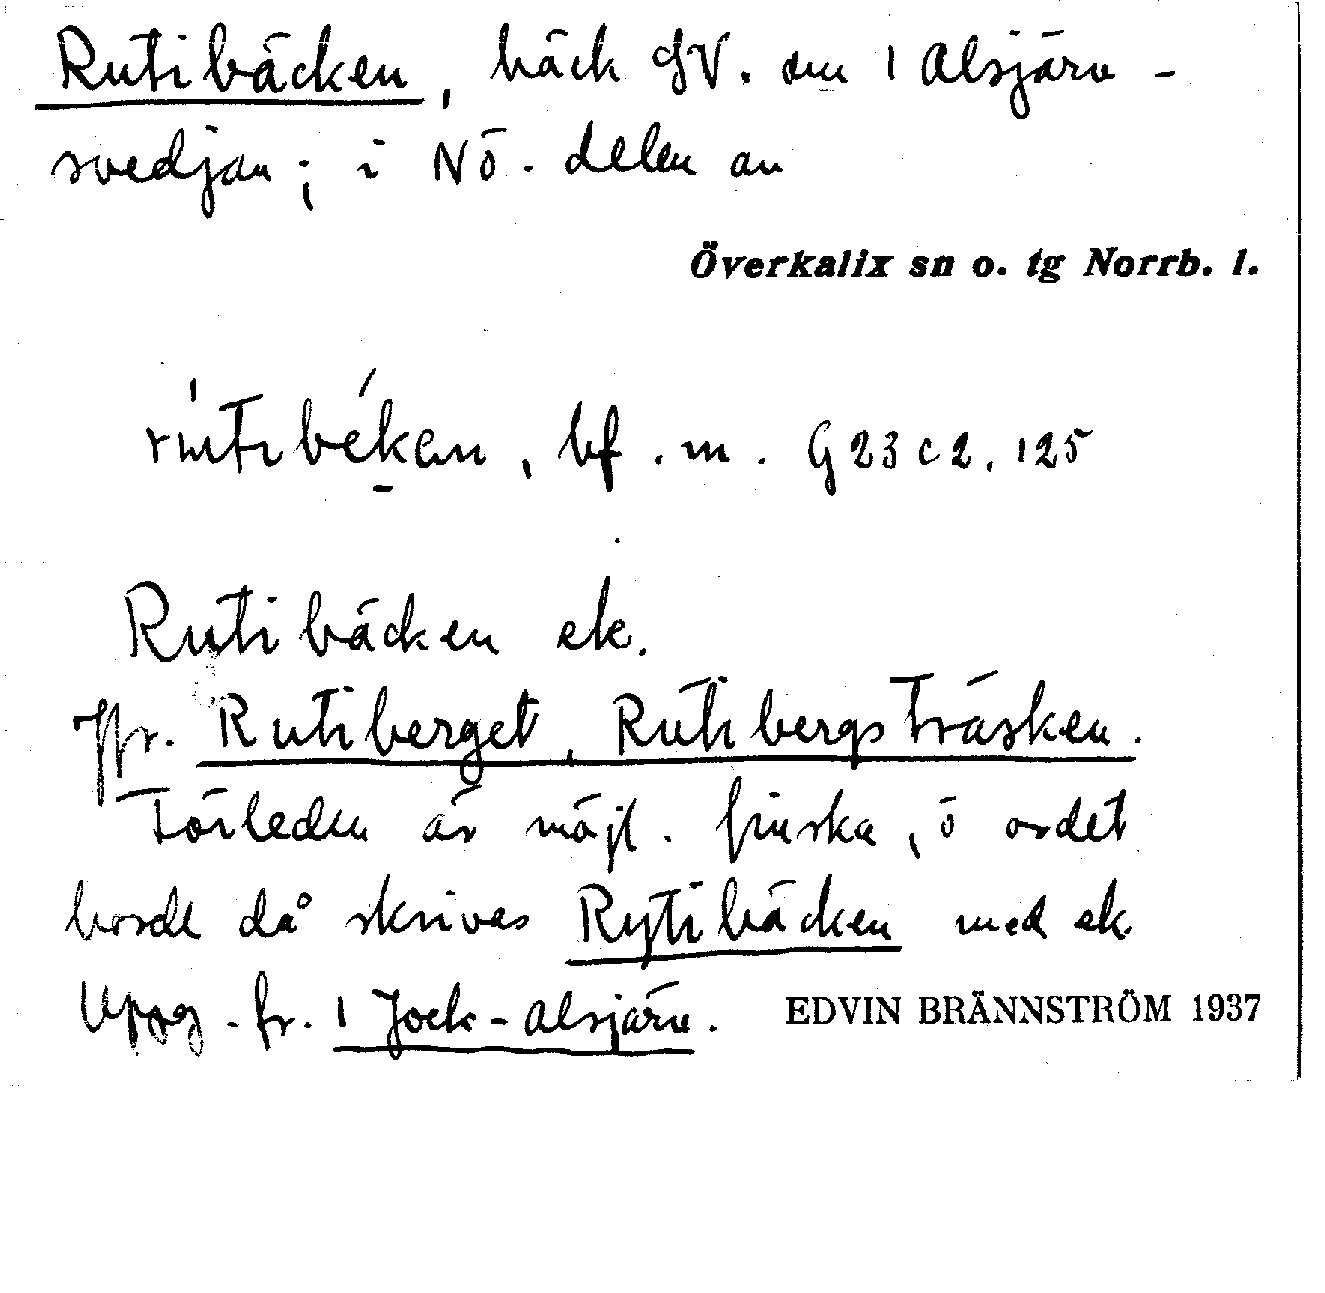 Rutibäcken, bäck SV. om 1 Alsjärv-
svedjan; i NÖ. delen av
Överkalix sn o. tg Norrb. l.
rutibekan, bf. m. G 23 c 2, 125
Rutibäcken ek.
Jfr. Rutiberget, Rutibergsträsken.
Förleden är möjl. finska, o ordet
borde då skrivas Rytibäcken med ek
Uppg. fr. 1 Jock-alsjärv. EDVIN BRÄNNSTRÖM 1937